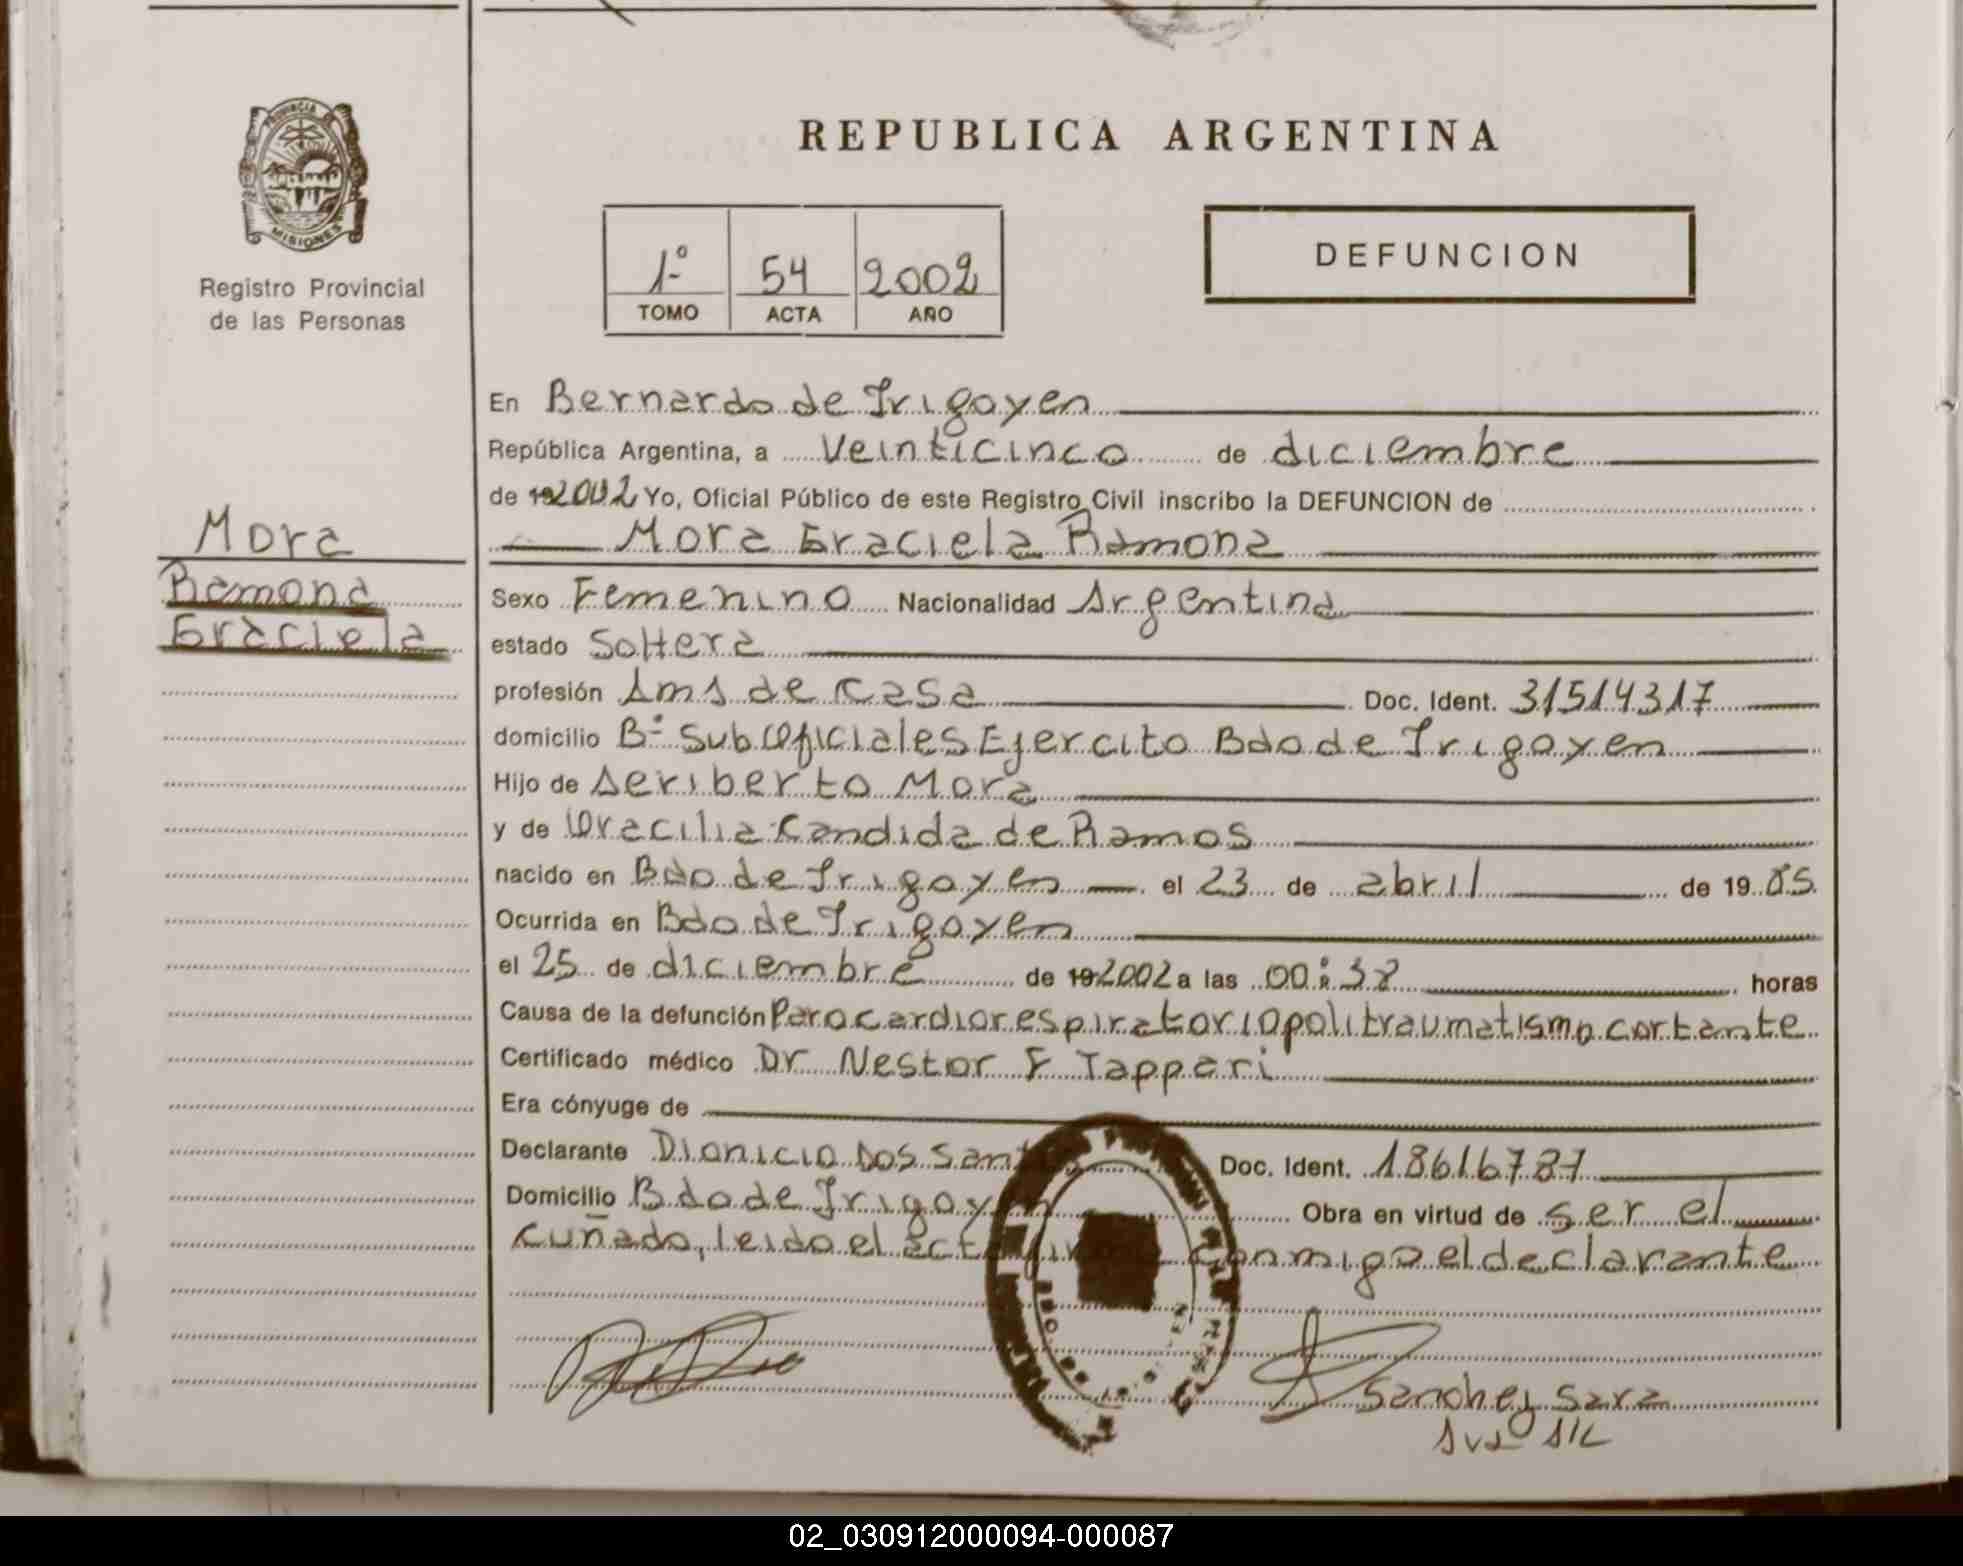 PROVINCIA DE
MISIONES
Registro Provincial
de las Personas
REPUBLICA ARGENTINA
1º 54 2002
TOMO ACTA AÑO
DEFUNCION
En Bernardo de Irigoyen
República Argentina, a veinticinco de diciembre
de 19 2002 Yo, Oficial Público de este Registro Civil inscribo la DEFUNCION de
Mora Graciela Ramona
Mora
Ramona
Graciela
Sexo Femenino Nacionalidad Argentina
estado Soltera
profesión Ama de Casa Doc. Ident. 31514317
domicilio Bº Sub Oficiales Ejercito Bdo de Irigoyen
Hijo de Aeriberto Mora
y de Oracilia Candida de Ramos
nacido en Bdo de Irigoyen el 23 de abril de 19 85
Ocurrida en Bdo de Irigoyen
el 25 de diciembre de 19 2002 a las 00:38 horas
Causa de la defunción Paro cardiorespiratorio politraumatismo cortante
Certificado médico Dr Nestor F Tappari
Era cónyuge de
Declarante Dionicio Dos Santos Doc. Ident. 18616787
Domicilio Bdo de Irigoyen Obra en virtud de ser el
cuñado, leido el acta firma conmigo el declarante
Sanchez Sara
02_030912000094-000087